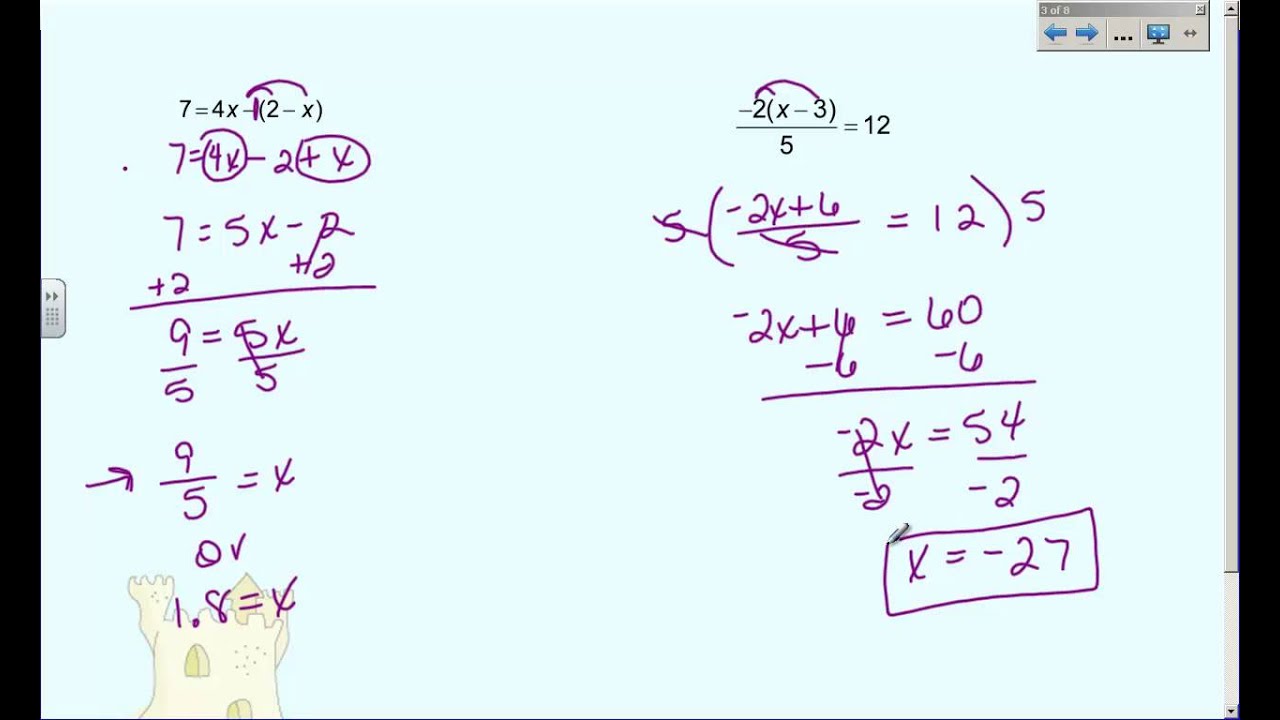 3 of 8
7=4x-1(2-x)
7=4x-2+x
7=5x-2
+2 +2
9=5x
5 5
9/5=x
or
1.8=x
-2(x-3)/5=12
5(-2x+6/5=12)5
-2x+6=60
-6 -6
-2x=54
-2 -2
x=-27